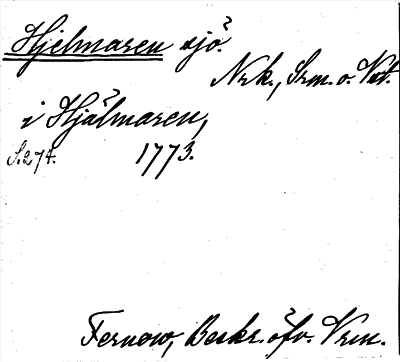 Hjelmaren sjö.
Nrk., Srm. o. Vst.
i Hjälmaren,
S. 274. 1773.
Fernow, Beskr. öfv. Vrm.